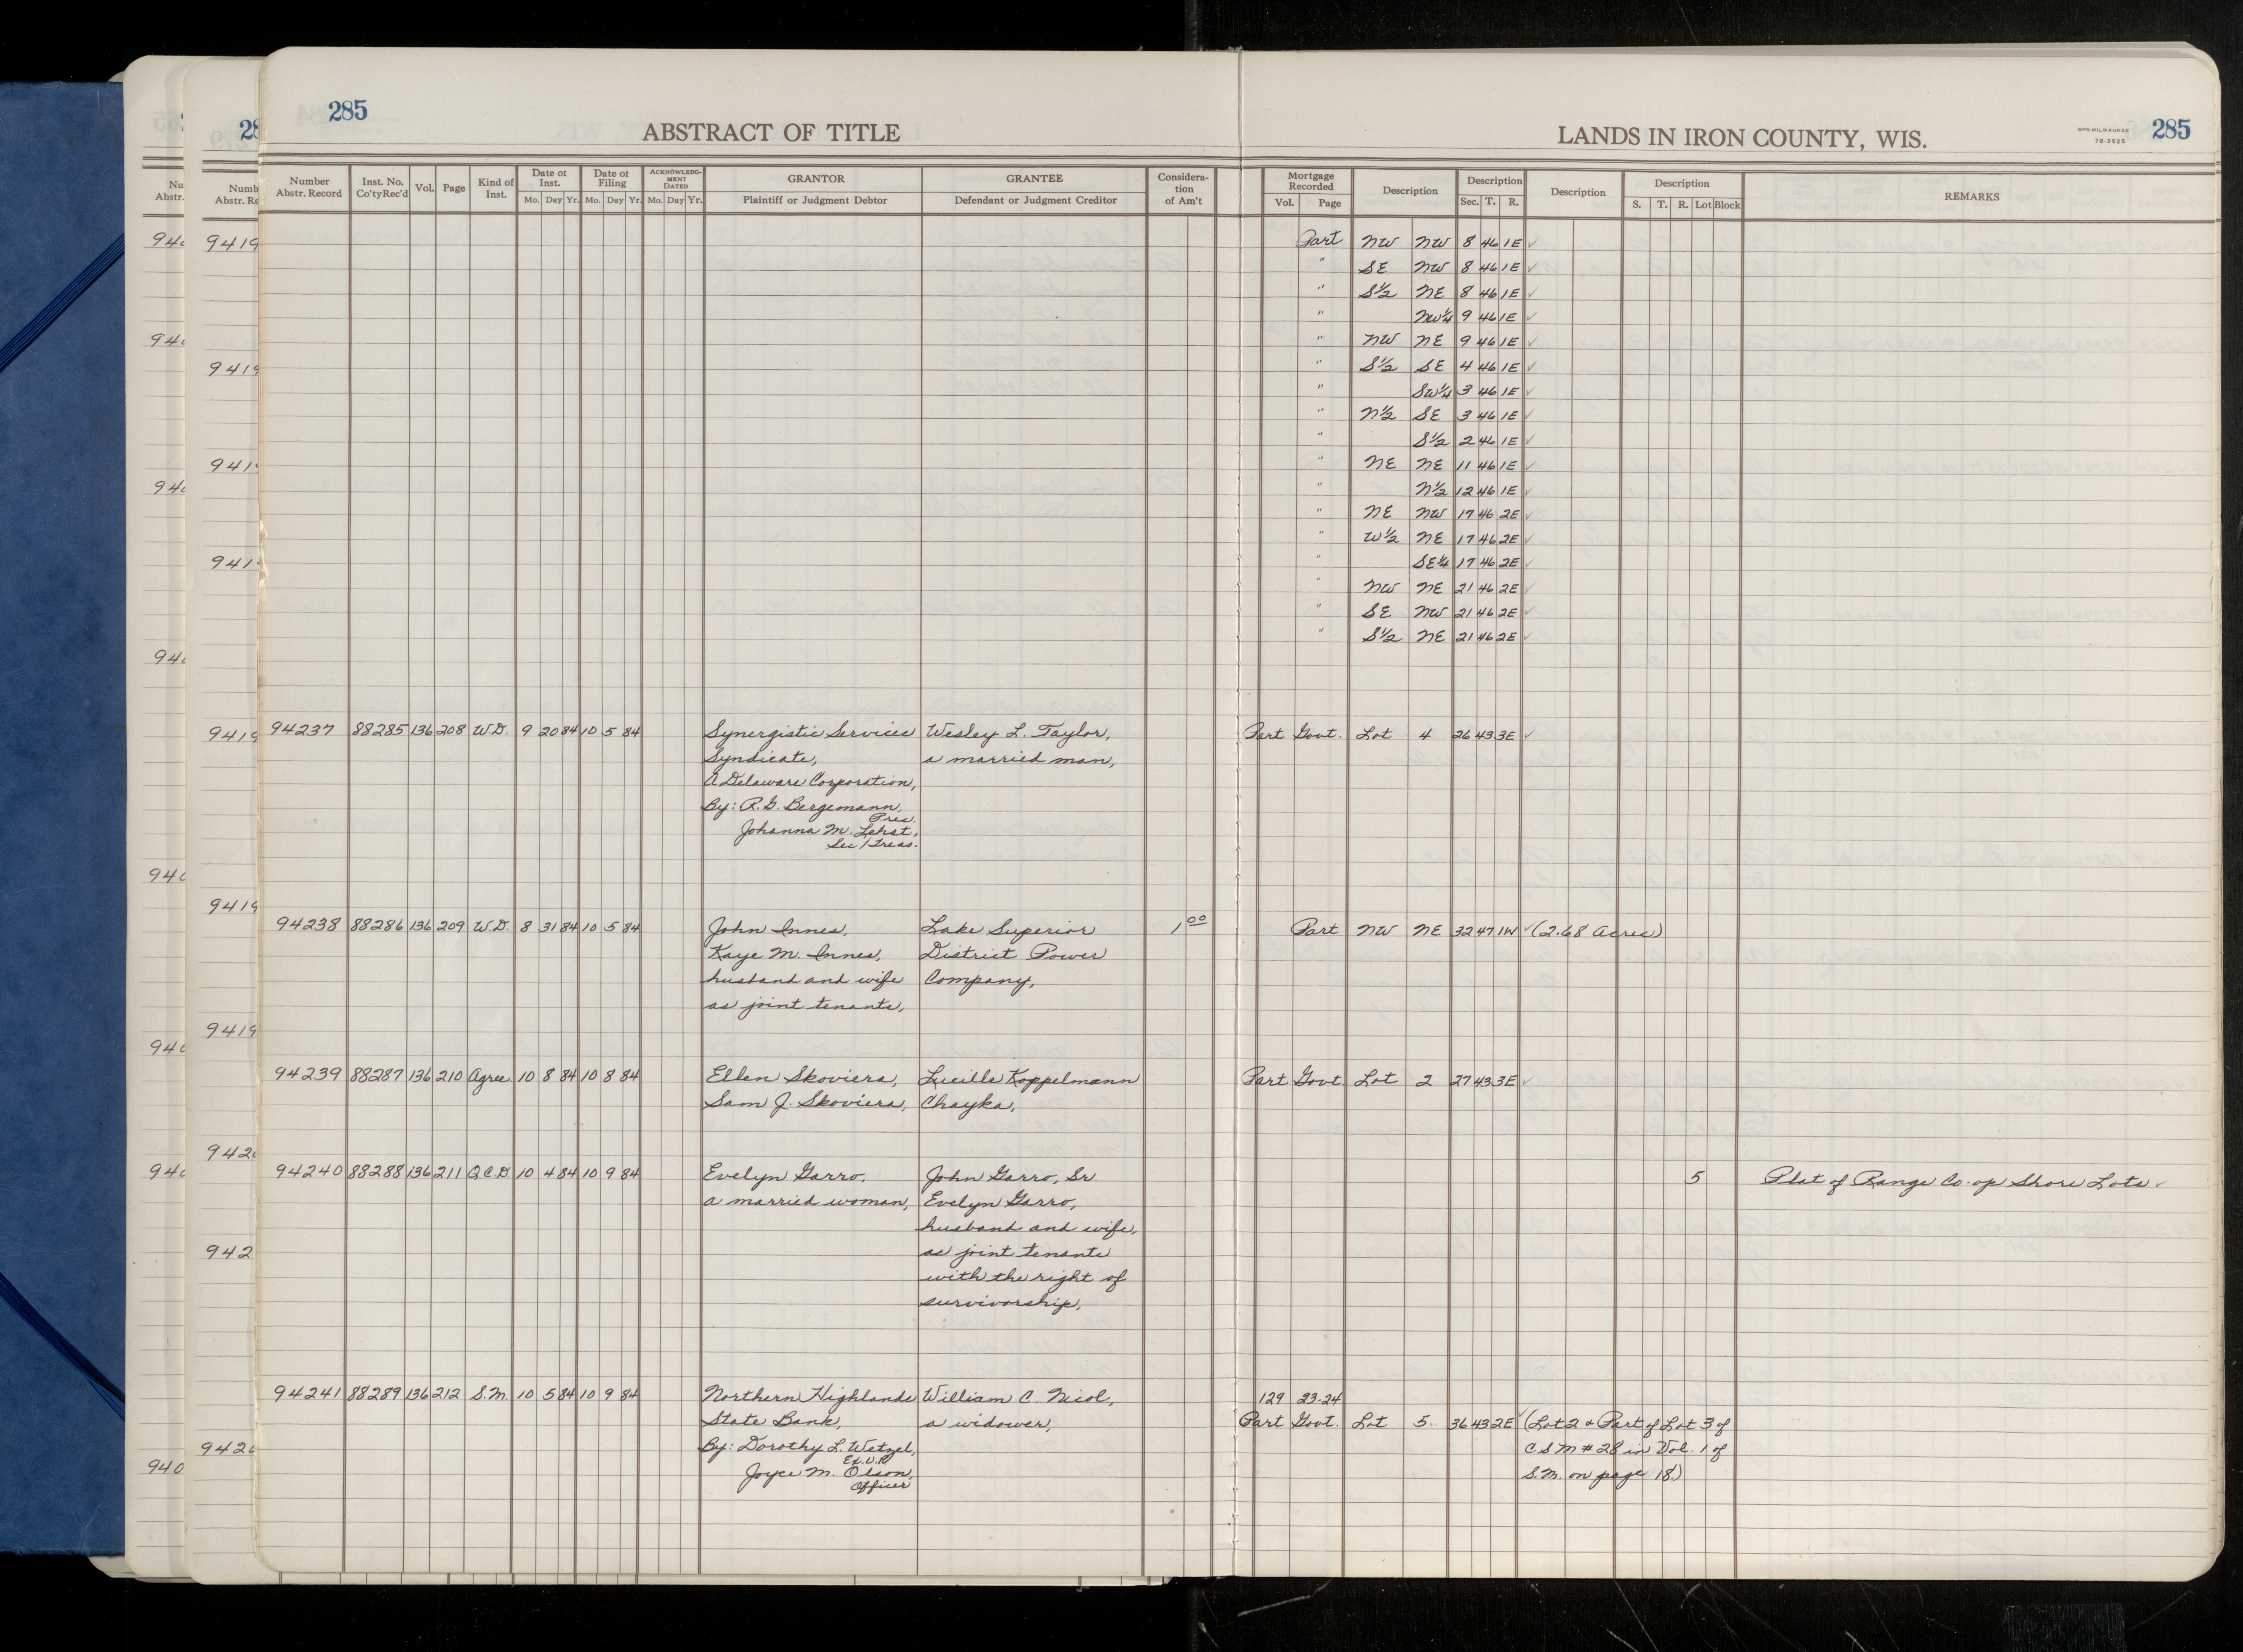 285
ABSTRACT OF TITLE
LANDS IN IRON COUNTY, WIS.
NPB-MILWAUKEE
78-3525
285
Number Abstr. Record | Inst. No. Co'tyRec'd | Vol. | Page | Kind of Inst. | Date of Inst. Mo. Day Yr. | Date of Filing Mo. Day Yr. | ACKNOWLEDGMENT DATED Mo. Day Yr. | GRANTOR Plaintiff or Judgment Debtor | GRANTEE Defendant or Judgment Creditor | Consideration of Am't | Mortgage Recorded Vol. Page | Description | Description Sec. T. R. | Description | Description S. T. R. Lot Block | REMARKS
Part NW NW 8 46 1E ✓
" SE NW 8 46 1E ✓
" S½ NE 8 46 1E ✓
" NW¼ 9 46 1E ✓
" NW NE 9 46 1E ✓
" S½ SE 4 46 1E ✓
" SW¼ 3 46 1E ✓
" N½ SE 3 46 1E ✓
" S½ 2 46 1E ✓
" NE NE 11 46 1E ✓
" N½ 12 46 1E ✓
" NE NW 17 46 2E ✓
" W½ NE 17 46 2E ✓
" SE¼ 17 46 2E ✓
" NW NE 21 46 2E ✓
" SE NW 21 46 2E ✓
" S½ NE 21 46 2E ✓
94237 88285 136 208 W.D. 9 20 84 10 5 84 Synergistic Services Wesley L. Taylor, Part Govt. Lot 4 26 43 3E ✓
Syndicate, a married man,
A Delaware Corporation,
By: R. G. Bergemann,
Pres.
Johanna M.
Sec/Treas.
94238 88286 136 209 W.D. 8 31 84 10 5 84 John Innes, Lake Superior 1.00 Part NW NE 32 47 1W ✓ (2.68 Acres)
Kaye M. Innes, District Power
husband and wife Company,
as joint tenants,
94239 88287 136 210 Agree 10 8 84 10 8 84 Ellen Skoviera, Lucille Koppelmann Part Govt. Lot 2 27 43 3E ✓
Sam J. Skoviera, Chayka,
94240 88288 136 211 Q.C.D. 10 4 84 10 9 84 Evelyn Garro, John Garro, Sr. 5 Plat of Range Co-op Shore Lots ✓
a married woman, Evelyn Garro,
husband and wife,
as joint tenants
with the right of
survivorship,
94241 88289 136 212 S.M. 10 5 84 10 9 84 Northern Highlands William C. Nicol, 129 23-24
State Bank, a widower, Part Govt. Lot 5. 36 43 2E ✓ (Lot 2 & Part of Lot 3 of
By: Dorothy L. Wetzel, CSM #28 in Vol. 1 of
Ex. V.P.
Joyce M. Olson, S.M. on page 18.)
Officer